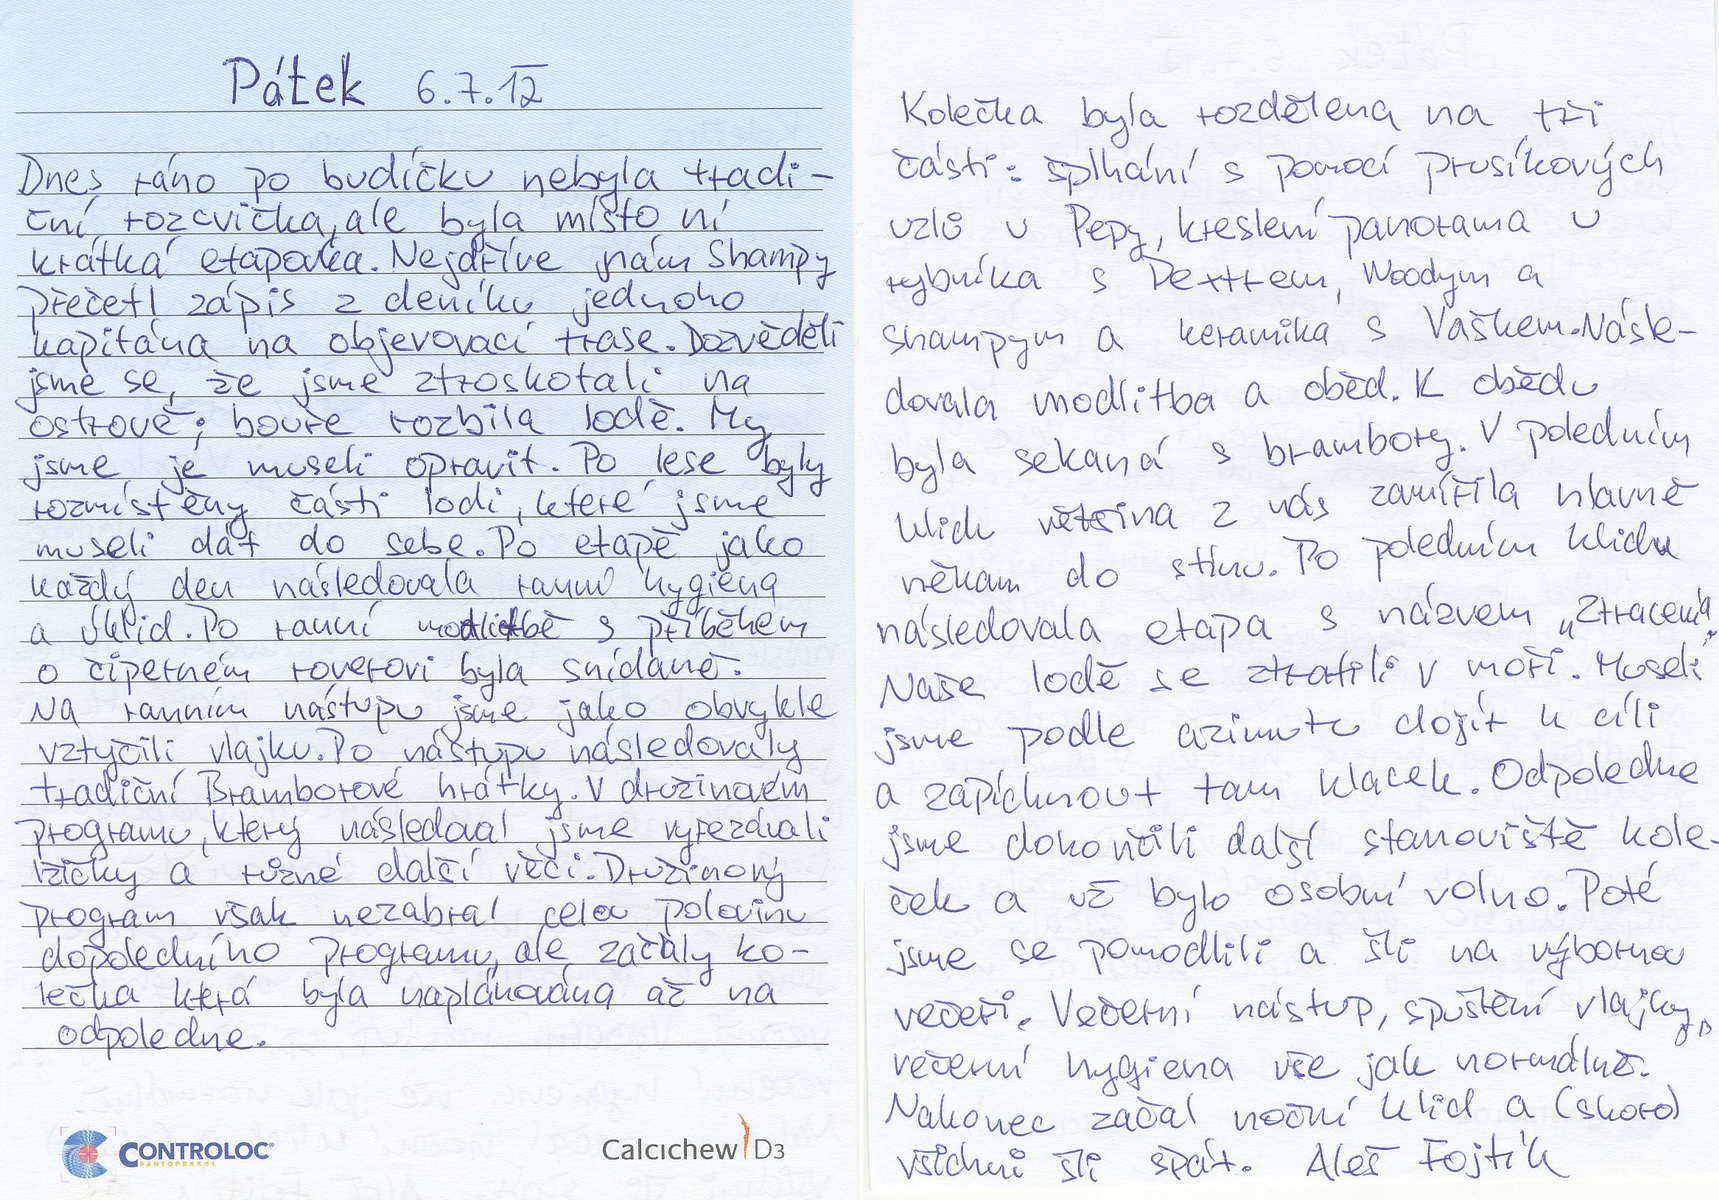 Pátek 6.7.12
Dnes ráno po budíčku nebyla tradi-
ční rozcvička, ale byla místo ní
krátká etapovka. Nejdříve nám Shampy
přečetl zápis z deníku jednoho
kapitána na objevovací trase. Dozvěděli
jsme se, že jsme ztroskotali na
ostrově; bouře rozbila lodě. My
jsme je museli opravit. Po lese byly
rozmístěny části lodi, které jsme
museli dát do sebe. Po etapě jako
každý den následovala ranní hygiena
a úklid. Po ranní modlitbě s příběhem
o čiperném roverovi byla snídaně.
Na ranním nástupu jsme jako obvykle
vztyčili vlajku. Po nástupu následovaly
tradiční Bramborové hrátky. V družinovém
programu, který následoval jsme vyřezávali
lžičky a různé další věci. Družinový
program však nezabral celou polovinu
dopoledního programu, ale začaly ko-
lečka která byla naplánována až na
odpoledne.
CONTROLOC®
PANTOPRAZOL
Calcichew D3
Kolečka byla rozdělena na tři
části: šplhání s pomocí prusíkových
uzlů u Pepy, kreslení panorama u
rybníka s Dextrem, Woodym a
Shampym a keramika s Vaškem. Násle-
dovala modlitba a oběd. K obědu
byla sekaná s brambory. V poledním
klidu většina z nás zamířila hlavně
někam do stínu. Po poledním klidu
následovala etapa s názvem „Ztracení"
Naše lodě se ztratili v moři. Museli
jsme podle azimutu dojít k cíli
a zapíchnout tam klacek. Odpoledne
jsme dokončili další stanoviště kole-
ček a už bylo osobní volno. Poté
jsme se pomodlili a šli na výbornou
večeři. Večerní nástup, spuštění vlajky,
večerní hygiena vše jak normálně.
Nakonec začal noční klid a (skoro)
všichni šli spát. Aleš Fojtík